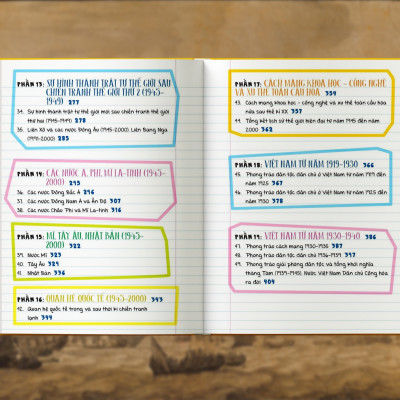 PHẦN 13: SỰ HÌNH THÀNH TRẬT TỰ THẾ GIỚI SAU
CHIẾN TRANH THẾ GIỚI THỨ 2 (1945-
1949) 277
34. Sự hình thành trật tự thế giới mới sau chiến tranh thế giới
thứ hai (1945-1949) 278
35. Liên Xô và các nước Đông Âu (1945-2000). Liên Bang Nga
(1991-2000) 285
PHẦN 14: CÁC NƯỚC Á, PHI, MĨ LA-TINH (1945-
2000) 295
36. Các nước Đông Bắc Á 296
37. Các nước Đông Nam Á và Ấn Độ 307
38. Các nước Châu Phi và Mĩ La-tinh 316
PHẦN 15: MĨ, TÂY ÂU, NHẬT BẢN (1945-
2000) 322
39. Nước Mĩ 323
40. Tây Âu 329
41. Nhật Bản 336
PHẦN 16: QUAN HỆ QUỐC TẾ (1945-2000) 343
42. Quan hệ quốc tế trong và sau thời kì chiến tranh
lạnh 344
PHẦN 17: CÁCH MẠNG KHOA HỌC - CÔNG NGHỆ
VÀ XU THẾ TOÀN CẦU HÓA 354
43. Cách mạng khoa học - công nghệ và xu thế toàn cầu hóa
nửa sau thế kỉ XX 357
44. Tổng kết lịch sử thế giới hiện đại từ năm 1945 đến năm
2000 362
PHẦN 18: VIỆT NAM TỪ NĂM 1919-1930 366
45. Phong trào dân tộc dân chủ ở Việt Nam từ năm 1919 đến
năm 1925 367
46. Phong trào dân tộc dân chủ ở Việt Nam từ năm 1925 đến
năm 1930 378
PHẦN 19: VIỆT NAM TỪ NĂM 1930-1945 386
47. Phong trào cách mạng 1930-1935 387
48. Phong trào dân tộc dân chủ 1936-1939 397
49. Phong trào giải phóng dân tộc và tổng khởi nghĩa
tháng Tám (1939-1945). Nước Việt Nam Dân chủ Cộng hòa
ra đời 404